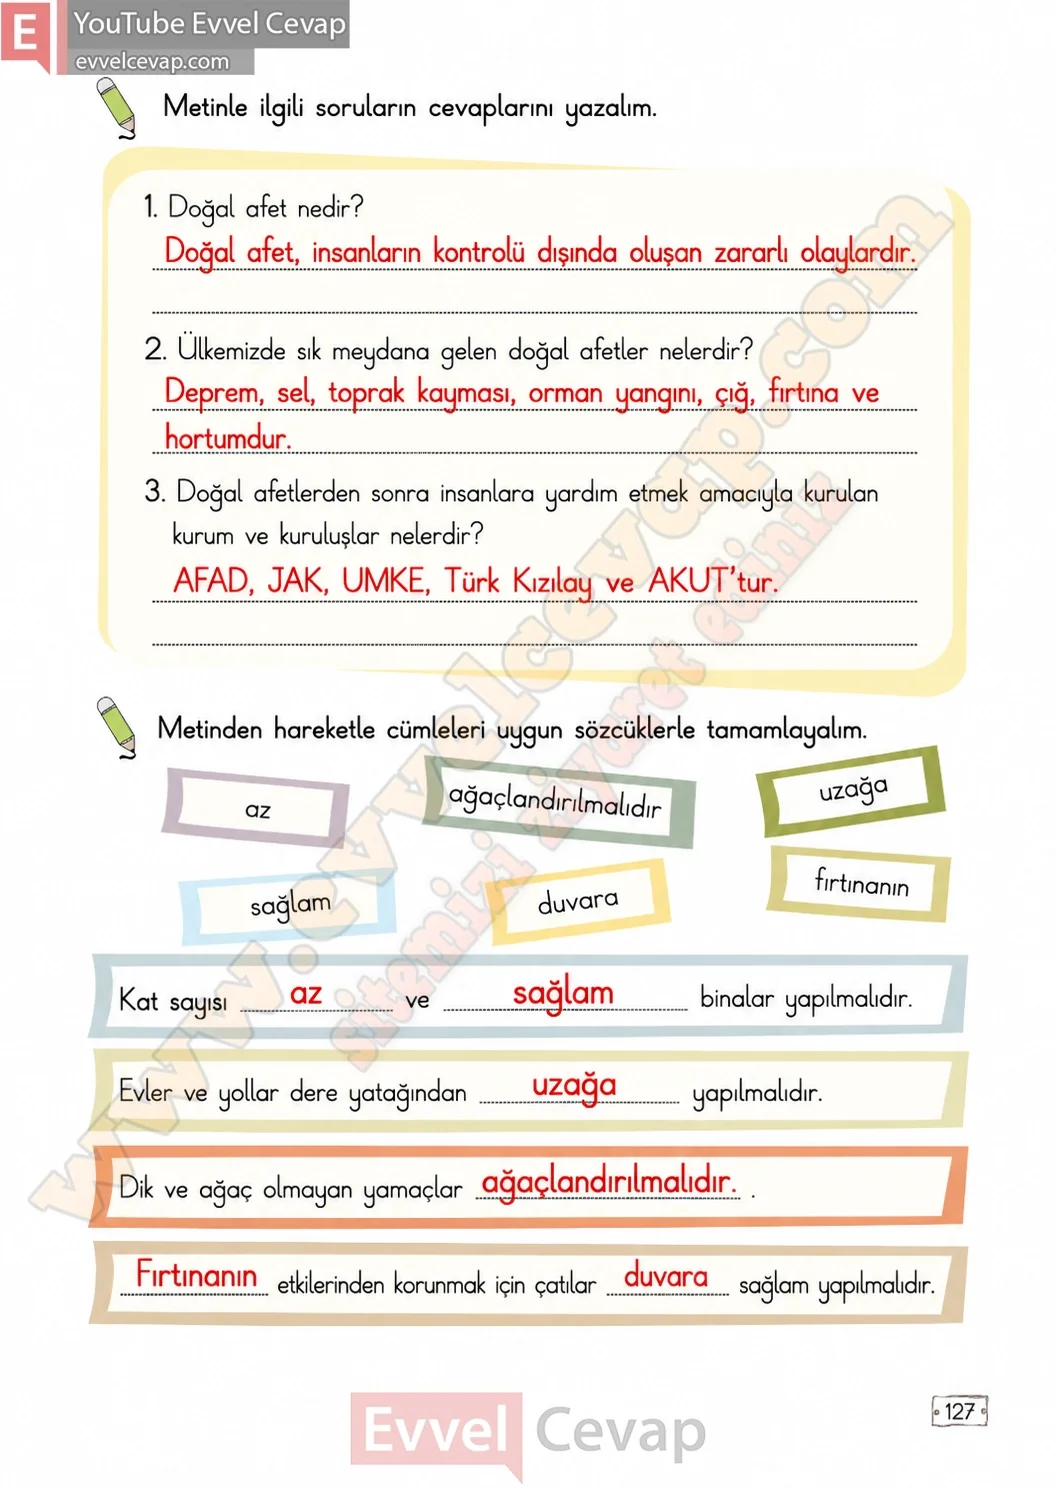 E YouTube Evvel Cevap
evvelcevap.com
Metinle ilgili soruların cevaplarını yazalım.
1. Doğal afet nedir?
Doğal afet, insanların kontrolü dışında oluşan zararlı olaylardır.
2. Ülkemizde sık meydana gelen doğal afetler nelerdir?
Deprem, sel, toprak kayması, orman yangını, çığ, fırtına ve
hortumdur.
3. Doğal afetlerden sonra insanlara yardım etmek amacıyla kurulan
kurum ve kuruluşlar nelerdir?
AFAD, JAK, UMKE, Türk Kızılay ve AKUT'tur.
www.evvelcevap.com
sitemizi ziyaret ediniz
Metinden hareketle cümleleri uygun sözcüklerle tamamlayalım.
az ağaçlandırılmalıdır uzağa
sağlam duvara fırtınanın
Kat sayısı az ve sağlam binalar yapılmalıdır.
Evler ve yollar dere yatağından uzağa yapılmalıdır.
Dik ve ağaç olmayan yamaçlar ağaçlandırılmalıdır. .
Fırtınanın etkilerinden korunmak için çatılar duvara sağlam yapılmalıdır.
127
Evvel Cevap